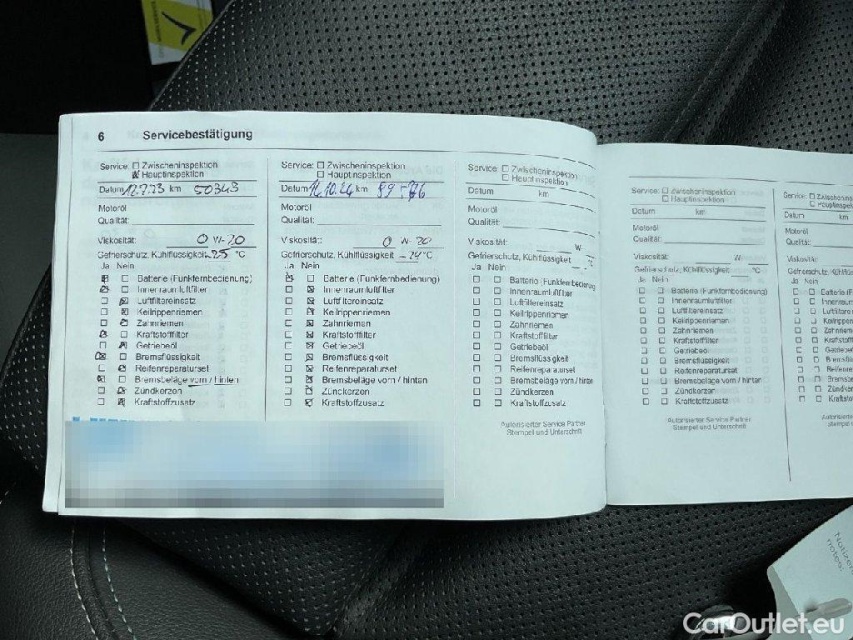 6 Servicebestätigung
Service: ☐ Zwischeninspektion
☒ Hauptinspektion
Datum 12.7.23 km 50343
Motoröl
Qualität:
Viskosität: 0 W-20
Gefrierschutz, Kühlflüssigkeit -25 °C
Ja Nein
☒ ☐ Batterie (Funkfernbedienung)
☒ ☐ Innenraumluftfilter
☐ ☒ Luftfiltereinsatz
☐ ☒ Keilrippenriemen
☐ ☒ Zahnriemen
☒ ☐ Kraftstofffilter
☐ ☒ Getriebeöl
☒ ☐ Bremsflüssigkeit
☐ ☒ Reifenreparaturset
☒ ☐ Bremsbeläge vorn / hinten
☐ ☒ Zündkerzen
☐ ☒ Kraftstoffzusatz
Service: ☐ Zwischeninspektion
☐ Hauptinspektion
Datum 10.24 km
Motoröl
Qualität:
Viskosität: 0 W
Gefrierschutz, Kühlflüssigkeit °C
Ja Nein
☒ ☐ Batterie (Funkfernbedienung)
☐ ☒ Innenraumluftfilter
☐ ☒ Luftfiltereinsatz
☐ ☒ Keilrippenriemen
☐ ☒ Zahnriemen
☐ ☒ Kraftstofffilter
☐ ☒ Getriebeöl
☐ ☒ Bremsflüssigkeit
☐ ☒ Reifenreparaturset
☐ ☒ Bremsbeläge vorn / hinten
☐ ☒ Zündkerzen
☐ ☒ Kraftstoffzusatz
Service: ☐ Zwischeninspektion
☐ Hauptinspektion
Datum km
Motoröl
Qualität:
Viskosität: W
Gefrierschutz, Kühlflüssigkeit °C
Ja Nein
☐ ☐ Batterie (Funkfernbedienung
☐ ☐ Innenraumluftfilter
☐ ☐ Luftfiltereinsatz
☐ ☐ Keilrippenriemen
☐ ☐ Zahnriemen
☐ ☐ Kraftstofffilter
☐ ☐ Getriebeöl
☐ ☐ Bremsflüssigkeit
☐ ☐ Reifenreparaturset
☐ ☐ Bremsbeläge vorn / hinten
☐ ☐ Zündkerzen
☐ ☐ Kraftstoffzusatz
Autorisierter Service Partner
Stempel und Unterschrift
Service: ☐ Zwischeninspektion
☐ Hauptinspektion
Datum km
Motoröl
Qualität:
Viskosität: W
Gefrierschutz, Kühlflüssigkeit °C
Ja Nein
☐ ☐ Batterie (Funkfernbedienung)
☐ ☐ Innenraumluftfilter
☐ ☐ Luftfiltereinsatz
☐ ☐ Keilrippenriemen
☐ ☐ Zahnriemen
☐ ☐ Kraftstofffilter
☐ ☐ Getriebeöl
☐ ☐ Bremsflüssigkeit
☐ ☐ Reifenreparaturset
☐ ☐ Bremsbeläge vorn / hinten
☐ ☐ Zündkerzen
☐ ☐ Kraftstoffzusatz
Autorisierter Service Partner
Stempel und Unterschrift
Service:
Datum km
Motoröl
Qualität:
Viskosität:
Ja Nein
CarOutlet.eu